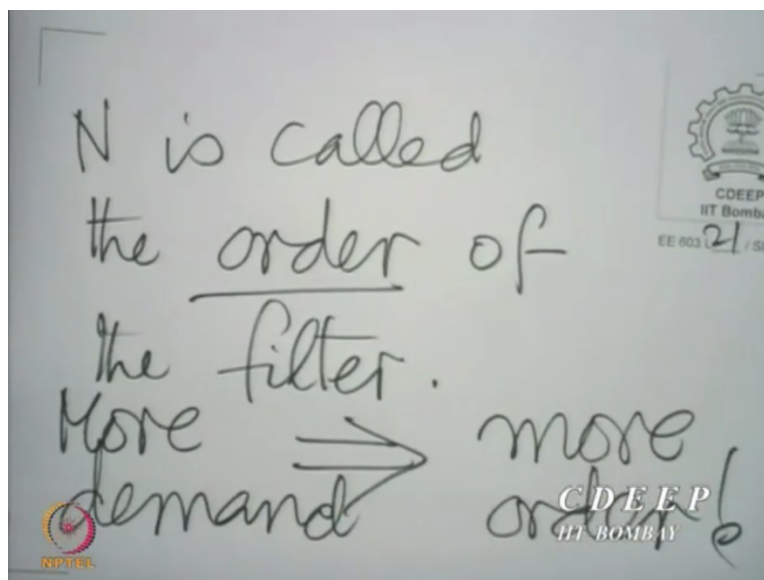 N is called
the order of
the filter.
More ⇒ more
demand order!
CDEEP
IIT Bomba
EE 603 L 21 / Sl
CDEEP
IIT BOMBAY
NPTEL